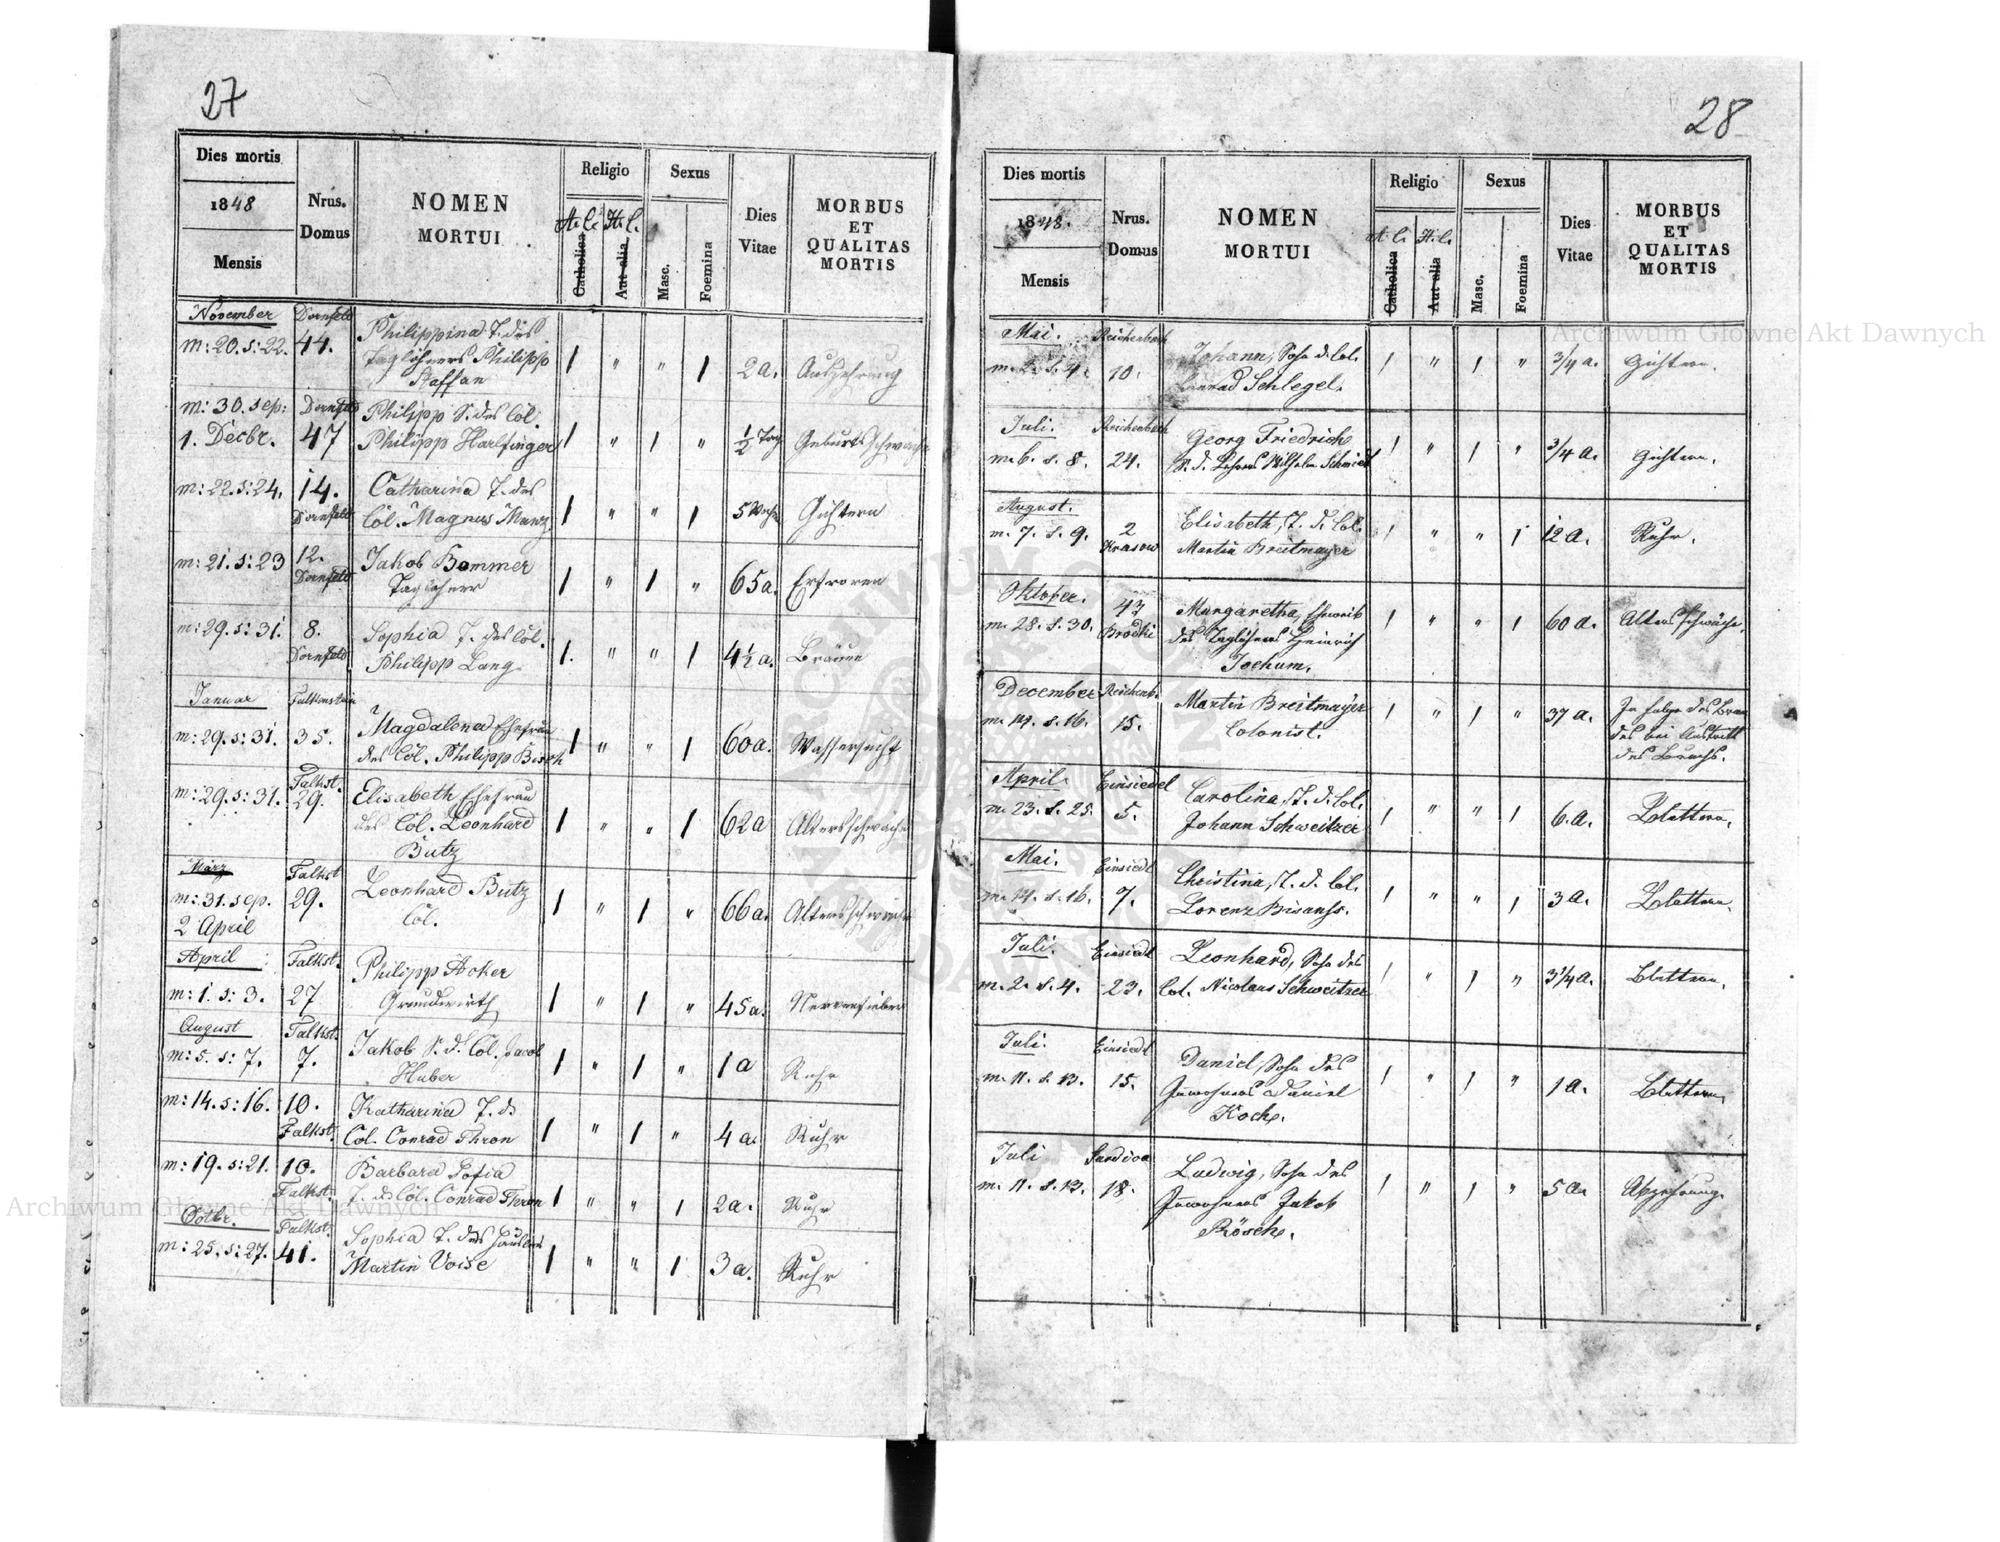 27
Dies mortis
1848
Mensis
Nrus.
Domus
NOMEN
MORTUI
Religio
A. C. H. C.
Catholica
Aut alia
Sexus
Masc.
Foemina
Dies
Vitae
MORBUS
ET
QUALITAS
MORTIS
November Dornfeld
m: 20. s: 22. 44. Philippina T. des
Taglöhners Philipp
Staffan
1 " " 1 2 a. Auszehrung
m: 30. sep: Dornfeld Philipp S. des Col.
1. Decbr. 47 Philipp Harlfinger 1 " 1 " ½ Tag Geburtsschwäche
m: 22. s: 24. 14. Catharina T. des
Dornfeld Col. Magnus Manz 1 " " 1 5 Wochen Gichtern
m: 21. s: 23 12. Jakob Bommer
Dornfeld Taglöhner 1 " 1 " 65 a. Erfroren
m: 29. s: 31. 8. Sophia T. des Col.
Dornfeld Philipp Lang 1. " " 1 4½ a. Bräune
Januar Falkenstein
m: 29. s: 31. 35. Magdalena Ehefrau
des Col. Philipp Bisch 1 " " 1 60 a. Wassersucht
m: 29. s: 31. Falkst. 29. Elisabeth Ehefrau
des Col. Leonhard
Butz
1 " " 1 62 a Altersschwäche
März Falkst
m: 31. sep. 29. Leonhard Butz
2 April Col. 1 " 1 " 66 a. Altersschwäche
April Falkst. Philipp Acker
m: 1. s: 3. 27 Grundwirth 1 " 1 " 45 a. Nervenfieber
August Falkst. Jakob S. d. Col. Jacob
m: 5. s: 7. 7. Huber 1 " 1 " 1 a Ruhr
m: 14. s: 16. 10. Katharina T. ds
Falkst. Col. Conrad Thron 1 " 1 " 4 a. Ruhr
m: 19. s: 21. 10. Barbara Sofia
Falkst. T. ds Col. Conrad Thron 1 " " 1 2 a. Ruhr
Octbr. Falkst. Sophia T. des
m: 25. s: 27. 41. Martin Voise 1 " " 1 3 a. Ruhr
28
Dies mortis
1848.
Mensis
Nrus.
Domus
NOMEN
MORTUI
Religio
A. C. H. C.
Catholica
Aut alia
Sexus
Masc.
Foemina
Dies
Vitae
MORBUS
ET
QUALITAS
MORTIS
Mai. Reichenbach Johann, Sohn d. Col.
m. 2. s. 4. 10. Conrad Schlegel. 1 " 1 " 3/4 a. Gichtern.
Juli. Reichenbach Georg Friedrich
m. 6. s. 8. 24. S. d. Lehrers Wilhelm Schmiedt 1 " 1 " 3/4 a. Gichtern.
August. Elisabeth, T. d. Col.
m. 7. s. 9. 2 Krasow Martin Breitmayer 1 " " 1 12 a. Ruhr.
Oktober. 43 Margaretha, Eheweib
m. 28. s. 30. Brodki des Taglöhners Heinrich
Jochum.
1 " " 1 60 a. Altersschwäche.
December Reichenb. Martin Breitmayer
m. 14. s. 16. 15. Colonist. 1 " 1 " 37 a. In Folge des Bran
des bei Austritt
des Bruchs.
April. Einsiedel Carolina, T. d. Col.
m. 23. s. 25. 5. Johann Schweitzer 1 " " 1 6. a. Blattern.
Mai. Einsiedl Christina, T. d. Col.
m. 14. s. 16. 7. Lorenz Bisanss. 1 " " 1 3 a. Blattern.
Juli. Einsiedl Leonhard, Sohn des
m. 2. s. 4. 23. Col. Nicolaus Schweitzer 1 " 1 " 3 1/4 a. Blattern.
Juli. Einsiedl Daniel, Sohn des
m. 11. s. 13. 15. Inwohners Daniel
Koch. 1 " 1 " 1 a. Blattern.
Juli Ludwig, Sohn des
m. 11. s. 13. 18. Inwohners Jakob
Rösch.
1 " 1 " 5 a. Abzehrung.
Archiwum Główne Akt Dawnych
Archiwum Główne Akt Dawnych
ARCHIWUM GŁÓWNE AKT DAWNYCH